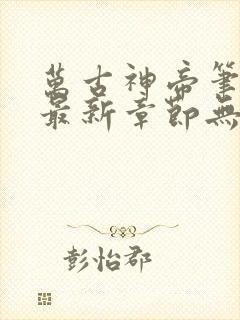 萬古神帝筆
最新章節無
彭怡郡